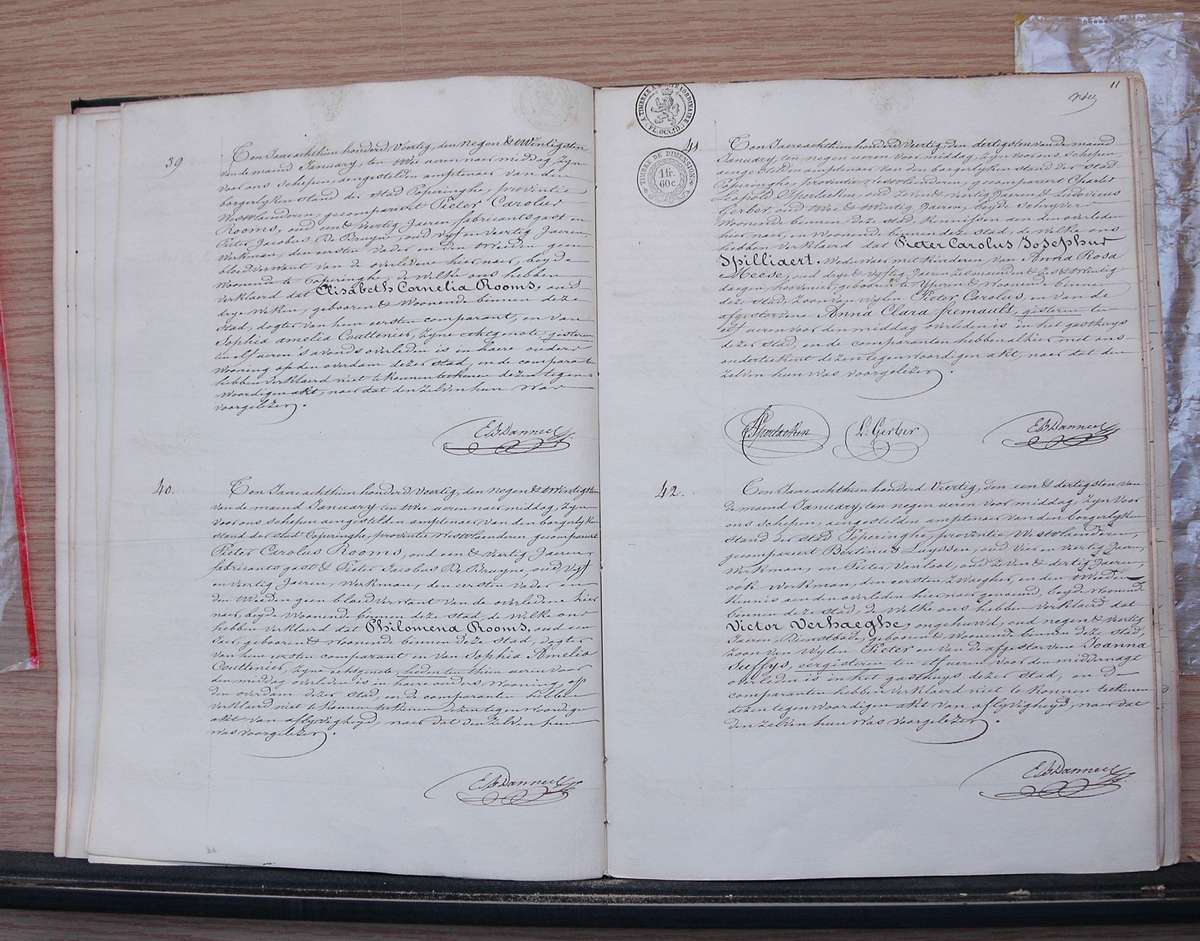 39
Ten Jare achtien honderd Veertig, den negen & twintigsten
van de maend January, ten twee ueren naer middag, zyn
voor ons Schepen aengestelden amptenaer van den
borgelyken Stand der Stad Poperinghe, provintie
Westvlanderen, gecompareert Pieter Carolus
Rooms, oud een & veertig Jaeren, fabriecantsgast en
Pieter Jacobus De Bruyne, oud vyf en veertig Jaeren,
Werkman, den eersten Vader en den tweeden geen
bloedverwant van de overledene hier naer, beyde
Woonende te Poperinghe, de Welke ons hebben
verklaerd dat Elisabeth Cornelia Rooms, oud
dry Weken, gebooren & Woonende binnen deze
Stad, dogter van hem eersten comparant, en van
Sophia amelia Couttenier, zyne echtgenote, gisteren
ten elf ueren s'avonds overleden is in haere ouders
Wooning op den overdam dezer Stad, en de comparanten
hebben verklaerd niet te konnen teekenen dezen tegen-
woordigen akt, naer dat den zelven hun was
voorgelezen.
E. De Danneel
40.
Ten Jare achtien honderd Veertig, den negen & twintigsten
van de maend January, ten twee ueren naer middag, zyn
voor ons Schepen aengestelden amptenaer van den borgelyken
Stand der Stad Poperinghe, provintie Westvlanderen gecompareert
Pieter Carolus Rooms, oud een & veertig Jaeren,
fabriecantsgast & Pieter Jacobus De Bruyne, oud Vyf
en Veertig Jaeren, Werkman, den eersten Vader en
den tweeden geen bloedverwant van de overledene hier
naer, beyde Woonende binnen deze Stad de Welke ons
hebben verklaerd dat Philomena Rooms, oud een
Jaer, gebooren & Woonende binnen deze Stad, dogter
van den eersten comparant en van Sophia Amelia
Couttenier, zyne echtgenote, heden ten thien ueren voor
den middag overleden is in haer ouders Wooning, op
den overdam dezer Stad, en de comparanten hebben
verklaerd niet te konnen teekenen dezen tegenwoordigen
akt van aflyvigheyd, naer dat den zelven hun
was voorgelezen.
E. De Danneel
11
TIMBRE EXTRAORDINAIRE
FL. OCCID.
TIMBRE DE DIMENSION
1 fr.
60 c.
41
Ten Jare achtien honderd Veertig den dertigsten van de maend
January, ten negen ueren voor middag, zyn voor ons Schepen
aengestelden amptenaer van den borgerlyken stand der Stad
Poperinghe, provintie Westvlanderen, gecompareert Charles
Leopold, oud Jaeren & Ludovicus
Gerber, oud twee & twintig Jaeren, beyde Schryvers
Woonende binnen deze Stad Kennissen aen den overleden
hier naer, en Woonende binnen deze Stad, de Welke ons
hebben verklaerd dat Pieter Carolus Josephus
Spilliaert, Weduwaer met Kinderen van Anna Rosa
Meese, oud dry & vyftig Jaeren zes maenden & zes & twintig
daegen, hovenier, geboren te Ypern & Woonende binnen
deze Stad, zoon van wylen Pieter Carolus, en van de
afgestorvene Anna Clara fremault, gisteren ten
elf ueren voor den middag overleden is in het gasthuys
dezer Stad, en de comparanten hebben alhier met ons
onderteekent dezen tegenwoordigen akt, naer dat den
zelven hun was voorgelezen.
L. Gerber
E. De Danneel
42.
Ten Jare achtien honderd Veertig, den een & dertigsten van
de maend January, ten negen ueren voor middag, zyn voor
ons Schepen, aengestelden amptenaer van den borgerlyken
Stand der Stad Poperinghe provintie Westvlanderen,
gecompareert Bertinus Luyssen, oud Vier en veertig Jaeren,
Werkman, en Pieter Vanloot, oud zeven & dertig Jaeren,
ook Werkman, den eersten Zwaeger, en den tweeden
kennis aen den overleden hier naer genaemd, beyde Woonende
binnen deze Stad, de Welke ons hebben verklaerd dat
Victor Verhaeghe, ongehuwd, oud negen & veertig
Jaeren, Dienstbode, geboren & Woonende binnen deze Stad,
zoon van Wylen Pieter en van de afgestorvene Joanna
Suffys, eergisteren ten elf ueren voor den middernagt
overleden is in het gasthuys dezer Stad, en de
comparanten hebben verklaerd niet te konnen teekenen
dezen tegenwoordigen akt van aflyvigheyd, naer dat
den zelven hun was voorgelezen.
E. De Danneel